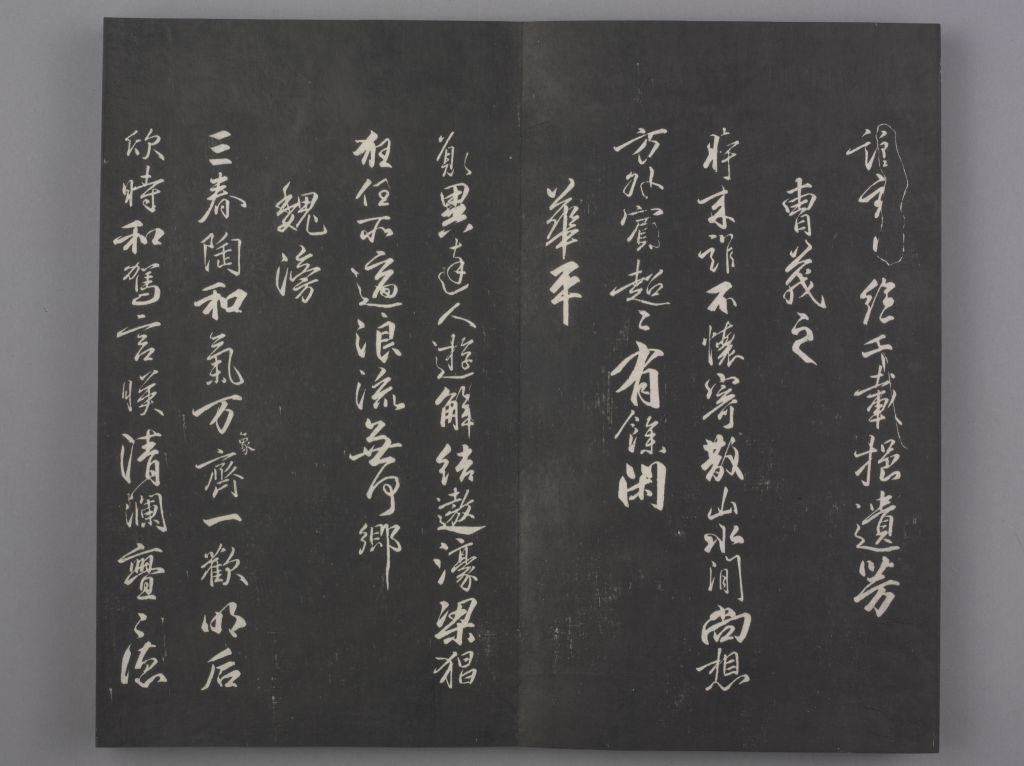 絶千載挹遺芳
曹茂之
時来誰不懷寄散山水間尚想
方外賓超〻有餘閑
華平
願與達人遊解結遨濠梁猖
狂任所適浪流無何鄉
魏滂
三春陶和氣万象齊一歡明后
欣時和駕言映清瀾亹〻德